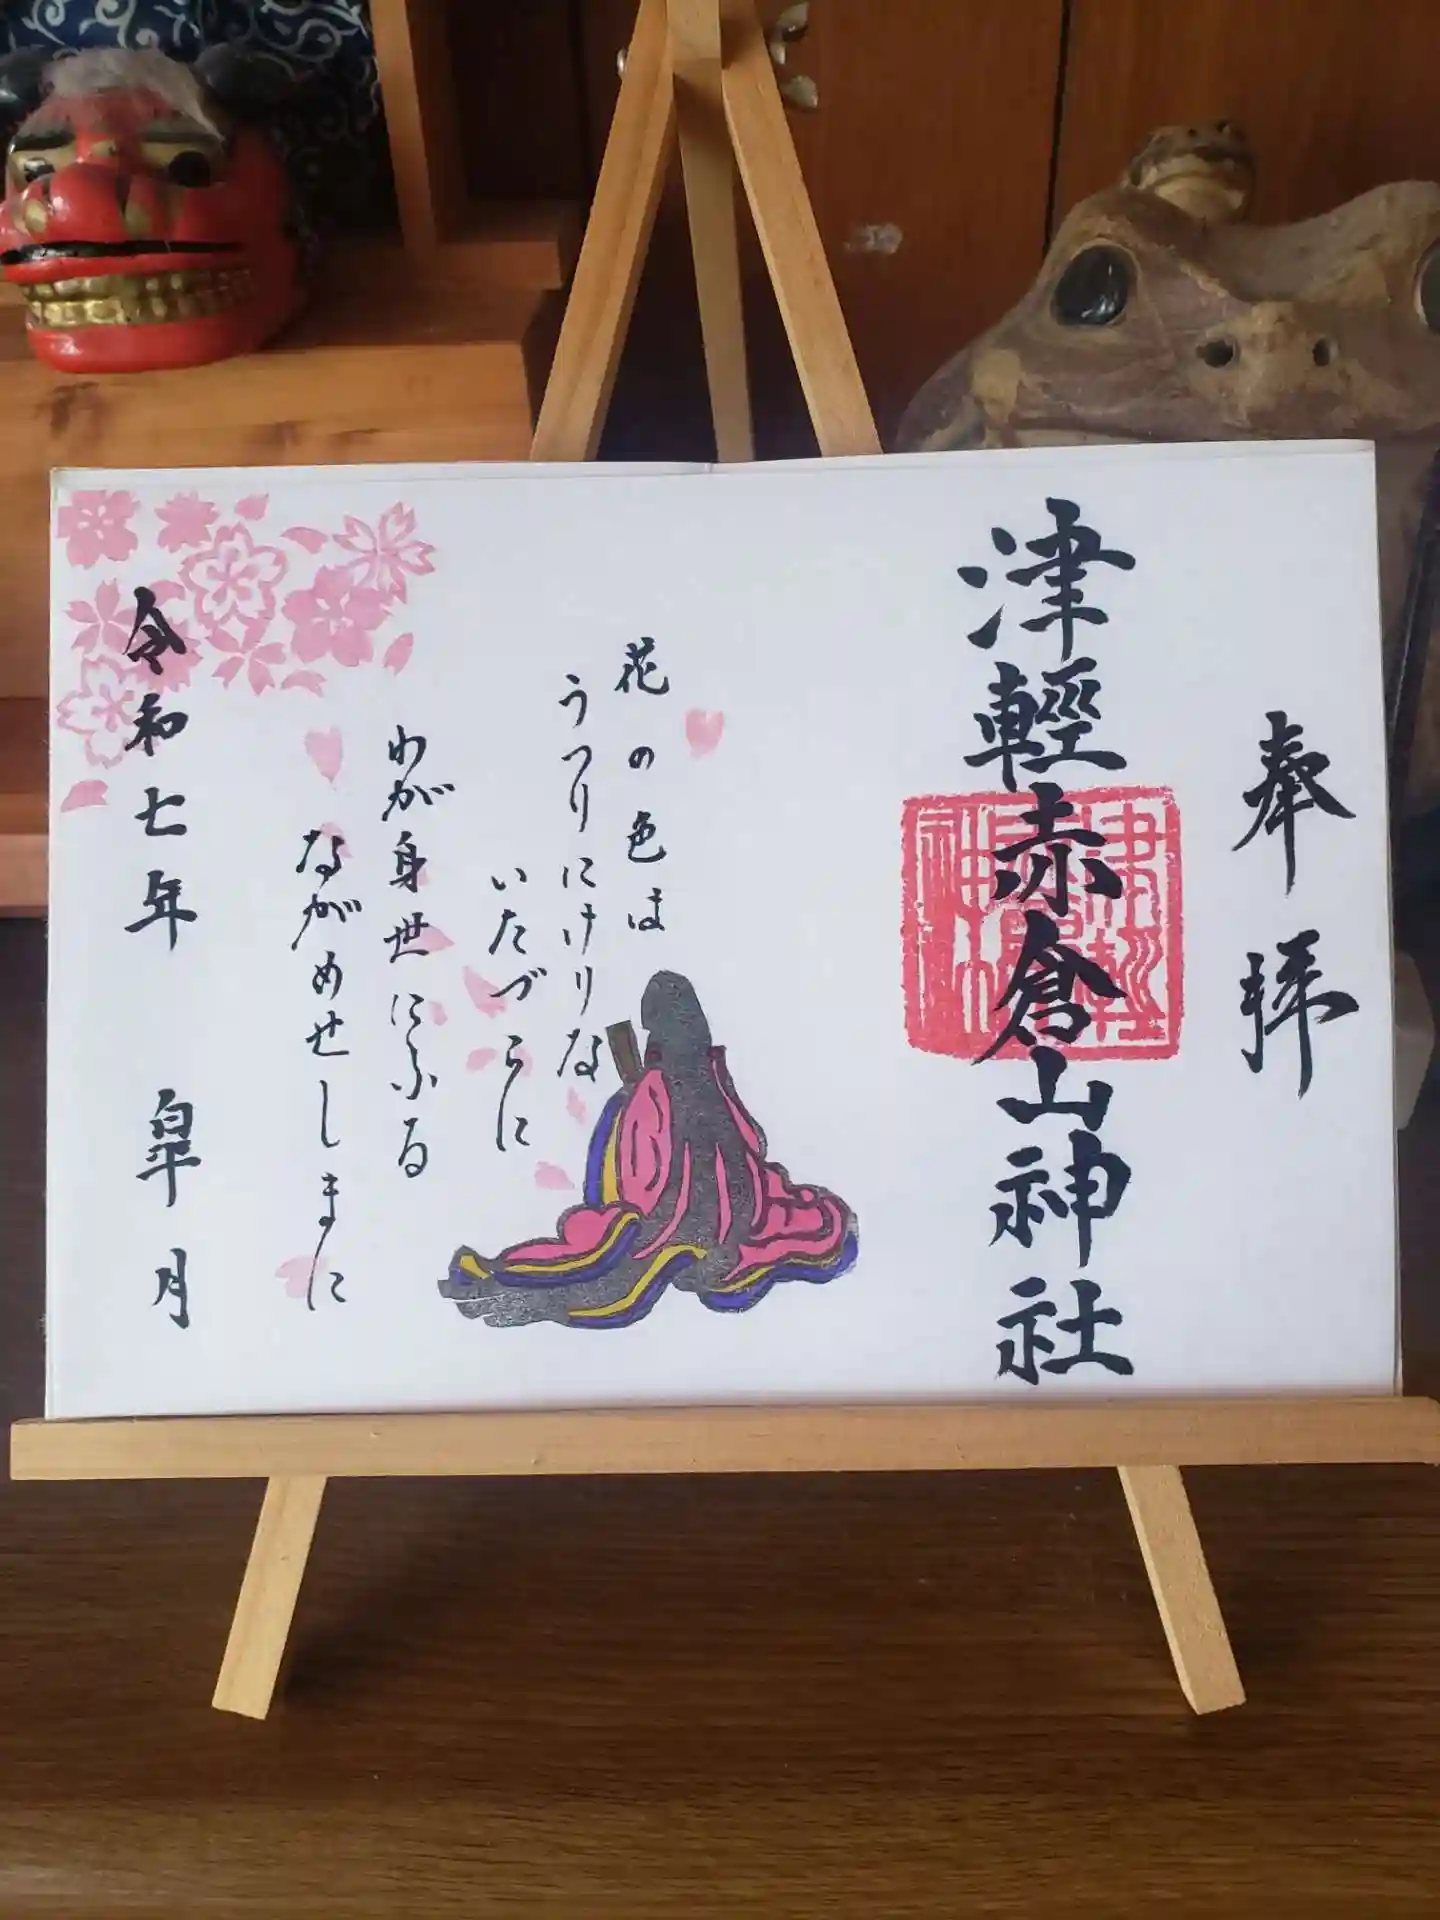 奉拝
津輕赤倉山神社
花の色は
うつりにけりな
いたづらに
わが身世にふる
ながめせしまに
令和七年 皐月